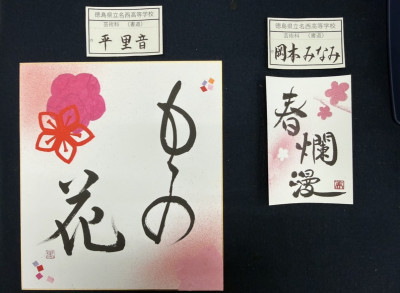 徳島県立名西高等学校
芸術科 (書道)
平 里音
ももの
花
徳島県立名西高等学校
芸術科 (書道)
岡本 みなみ
春
爛
漫